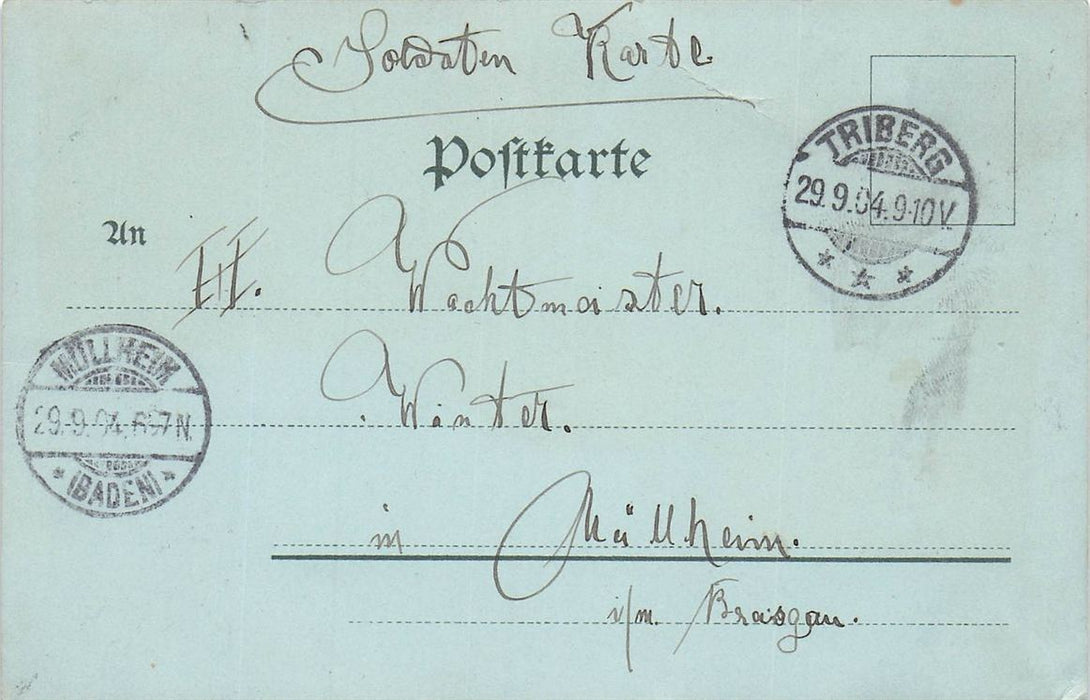 Soldaten Karte
Postkarte
TRIBERG
29.9.04.9-10V.
An
Wachtmeister.
MÜLLHEIM
29.9.04.6-7N.
(BADEN)
Winter.
in Müllheim.
i/m. Breisgau.